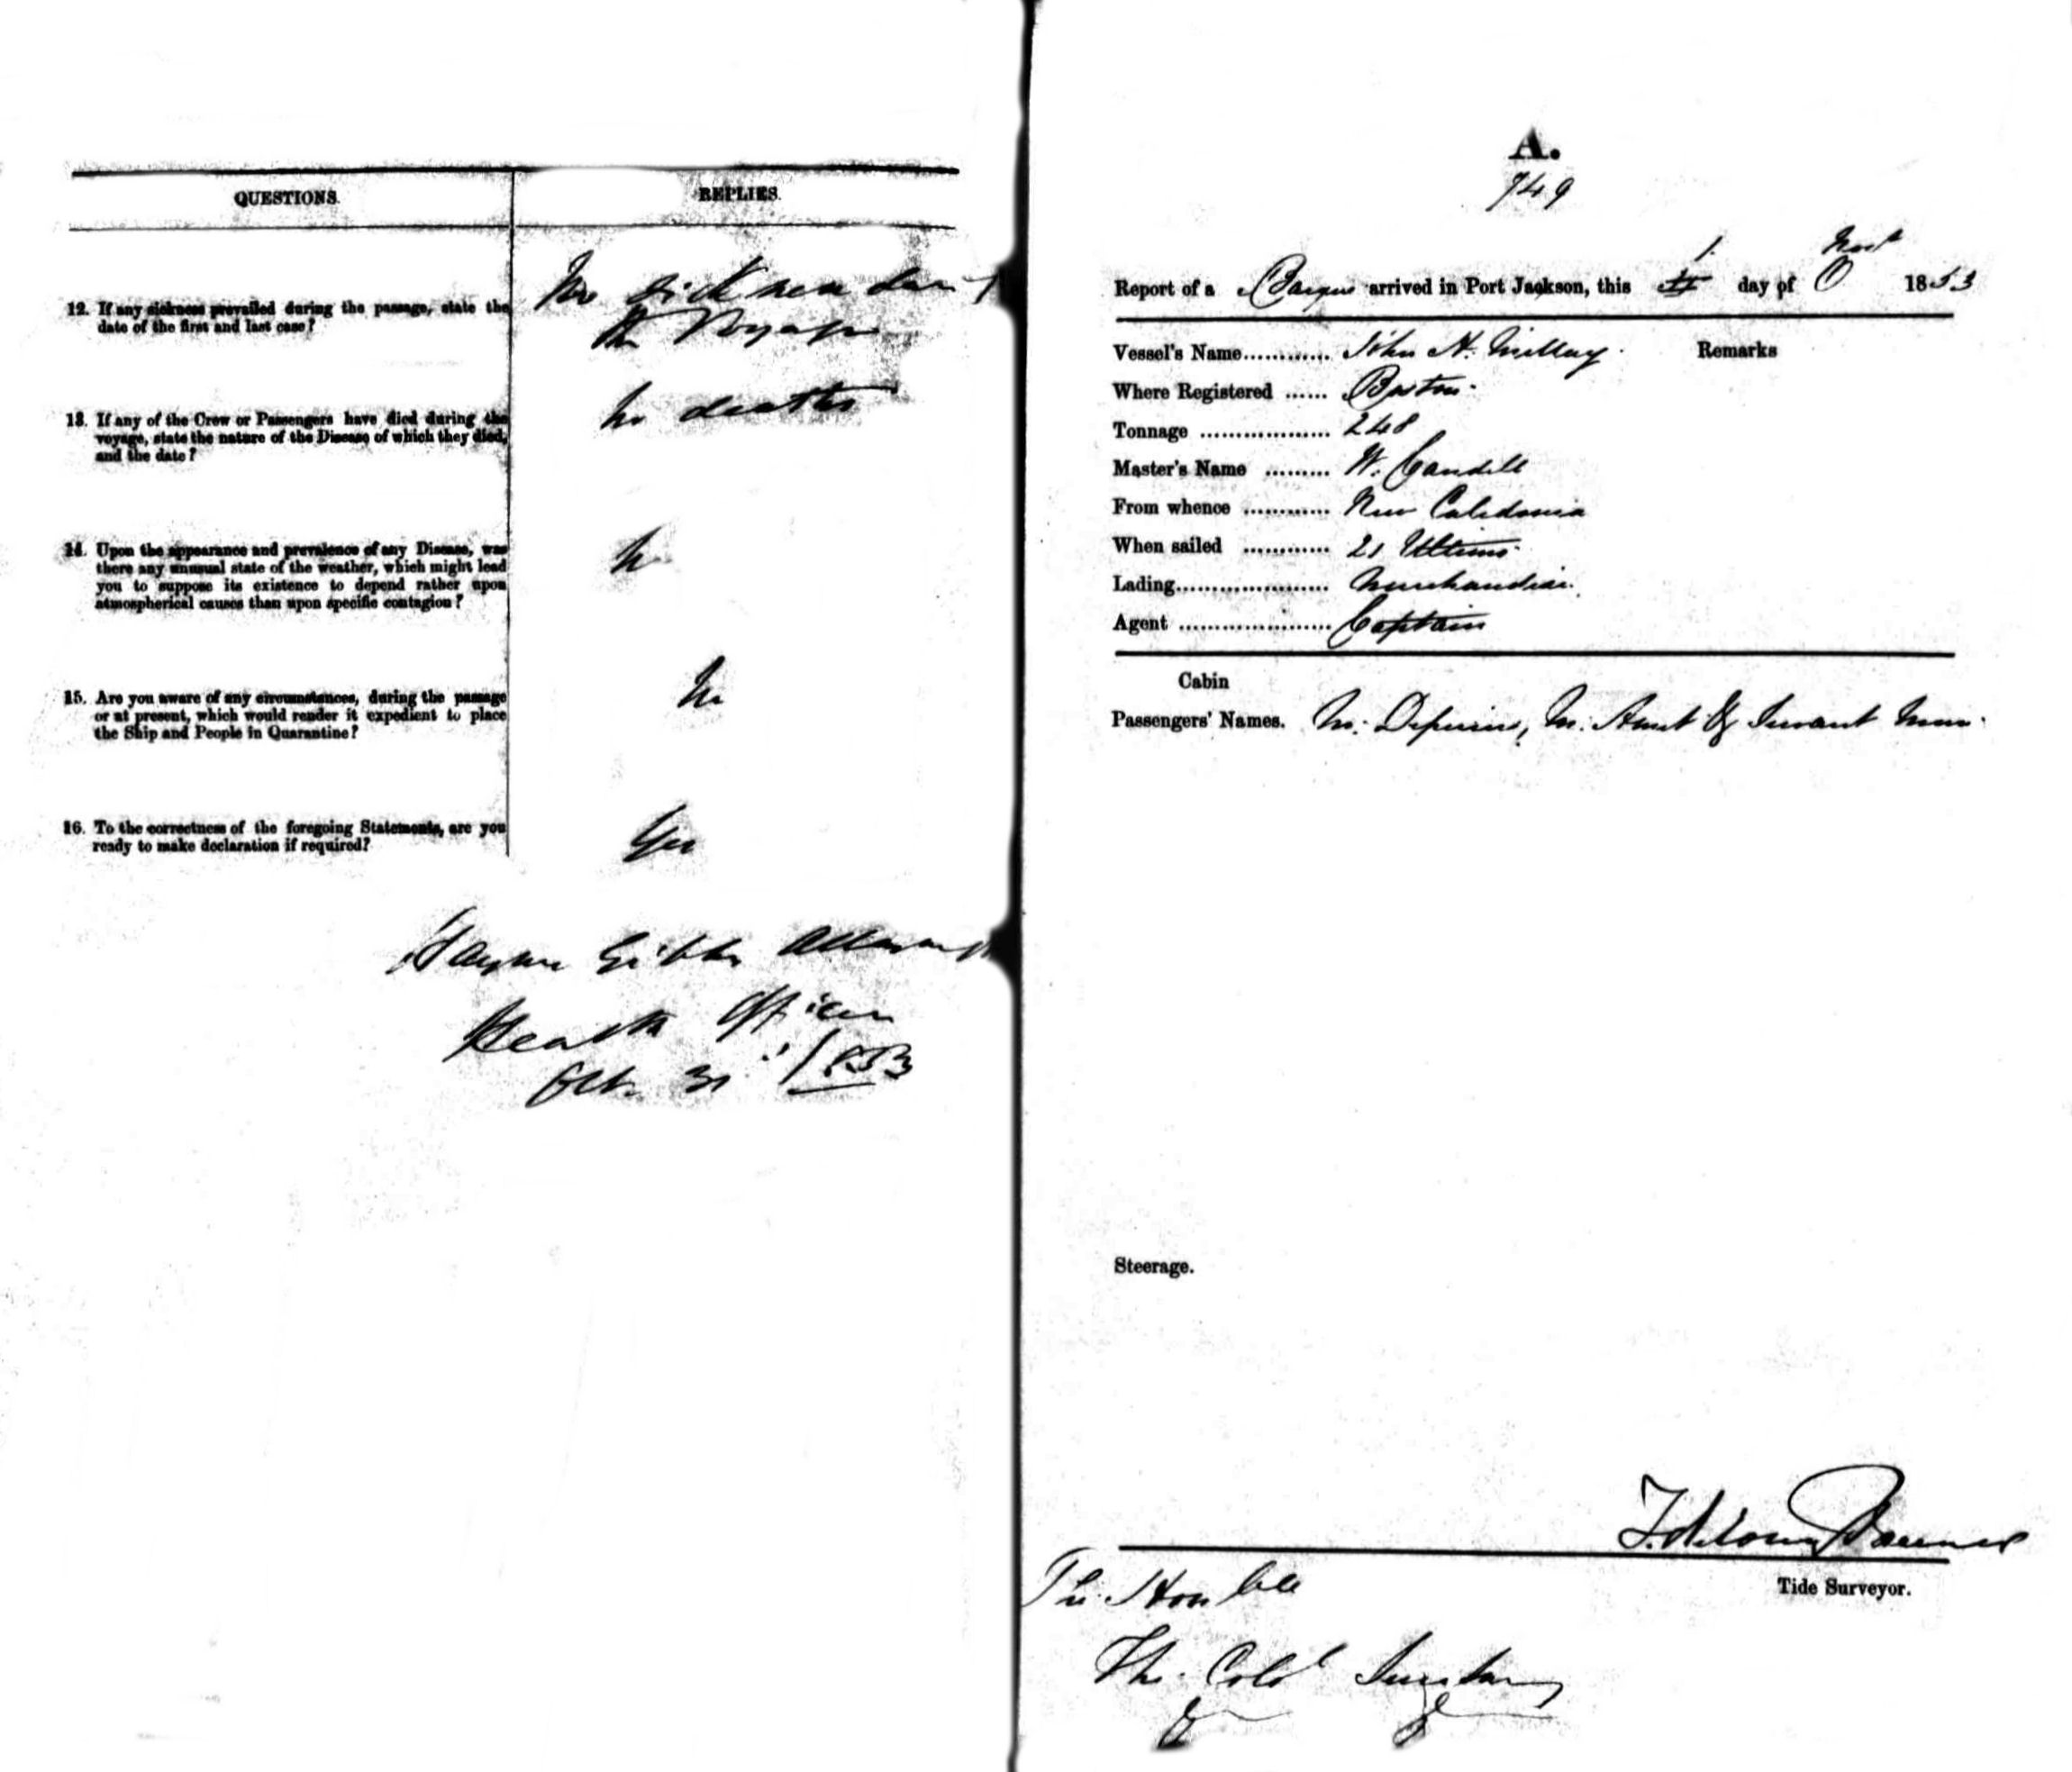 QUESTIONS.
REPLIES.
12. If any sickness prevailed during the passage, state the
date of the first and last case?
No sickness during
the Voyage
13. If any of the Crew or Passengers have died during the
voyage, state the nature of the Disease of which they died,
and the date?
No deaths
14. Upon the appearance and prevalence of any Disease, was
there any unusual state of the weather, which might lead
you to suppose its existence to depend rather upon
atmospherical causes than upon specific contagion?
No
15. Are you aware of any circumstances, during the passage
or at present, which would render it expedient to place
the Ship and People in Quarantine?
No
16. To the correctness of the foregoing Statements, are you
ready to make declaration if required?
Yes
Haynes Gibbes Alleyne
Health Officer
Oct. 31 1853
A.
749
Report of a Barque arrived in Port Jackson, this 1 day of Novr 1853
Vessel's Name............ John H. Millay. Remarks
Where Registered ...... Boston.
Tonnage .................. 248
Master's Name ......... W. Candell
From whence ............ New Caledonia
When sailed ............ 21 Ultimo.
Lading..................... Merchandise.
Agent ..................... Captain
Cabin
Passengers' Names. M. M. & Servant
Steerage.
Tide Surveyor.
The Honble
The Coll Secretary